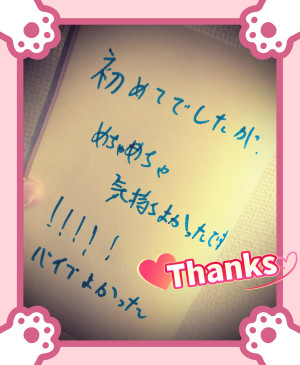 初めてでしたが、
めちゃめちゃ
気持ちよかったです
!!!!!
バイブよかった〜
Thanks